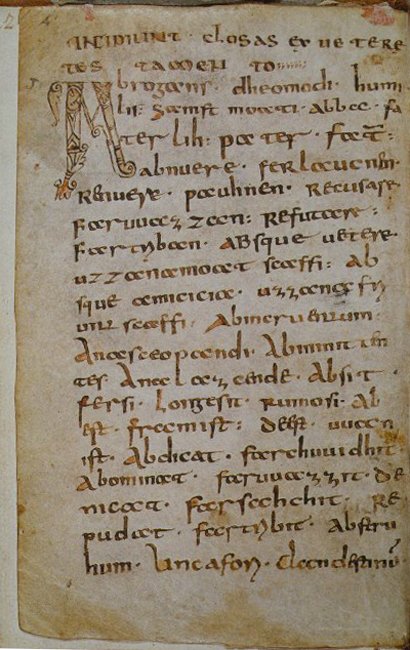 INCIPIUNT · CLOSAS EX VETERE
TES TAMENTO
Abrogans · dheomodi · humi
lis: samft moati · abbae · fa
ter lih: pater · fat̄:
abnuere · ferlaucnen ·
Renuere · pauhnen · Recusare
faruuazzan: Refutare:
fartriban · ABsque uetere ·
uzzana moat scaffi: Ab
sque amicicia · uzzana fri
unt scaffi · Abincruentum ·
Anasceopandi · Abminiten
tes Anablazende · Absit ·
fersi · Longesit · rumosi · Ab
est · framist: deest · uuan
ist · Abdicat · farchuuidhit
Abominat · faruuazzit · de
nicat · farsahchit · Re
pudat · fartribit · Abstru
hum · Lancafon · Clandestinū